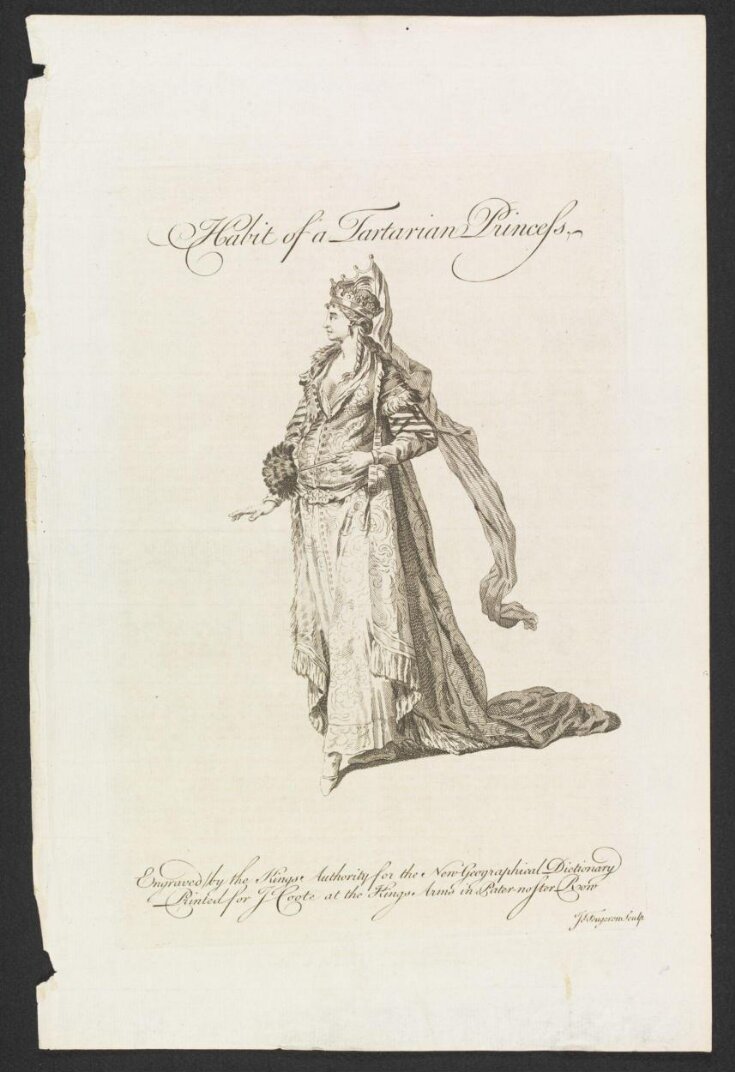 Habit of a Tartarian Princeſs
Engraved by the Kings Authority for the New Geographical Dictionary
Printed for J. Coote at the Kings Arms in Pater-noſter Row
Sculp